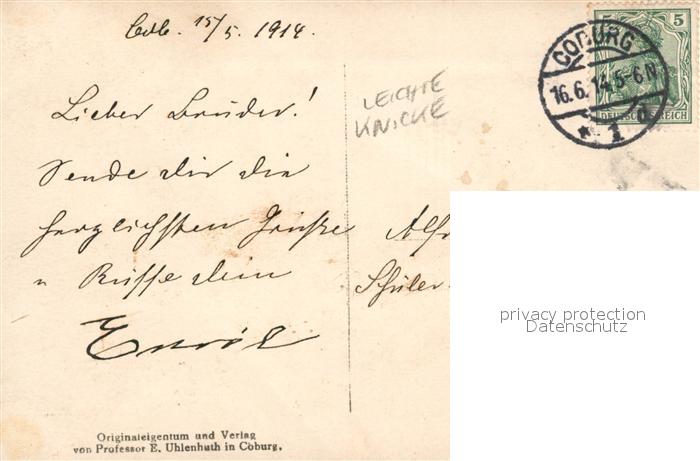 15/5. 1914.
Lieber Bruder!
Sende dir die
herzlichsten Grüße
u Küsse dein
Emil
LEICHTE
KNICKE
COBURG
16.6.14.5-6N
* 1 d
5
DEUTSCHES REICH
Alf
Schüler
privacy protection
Datenschutz
Originaleigentum und Verlag
von Professor E. Uhlenhuth in Coburg.